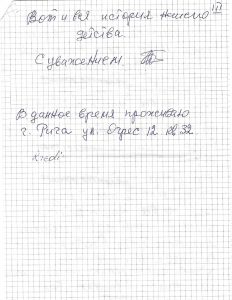 III
Вот и вся история нашего
детства.
С уважением
В данное время проживаю
г. Рига ул. Огрес 12 кв 32